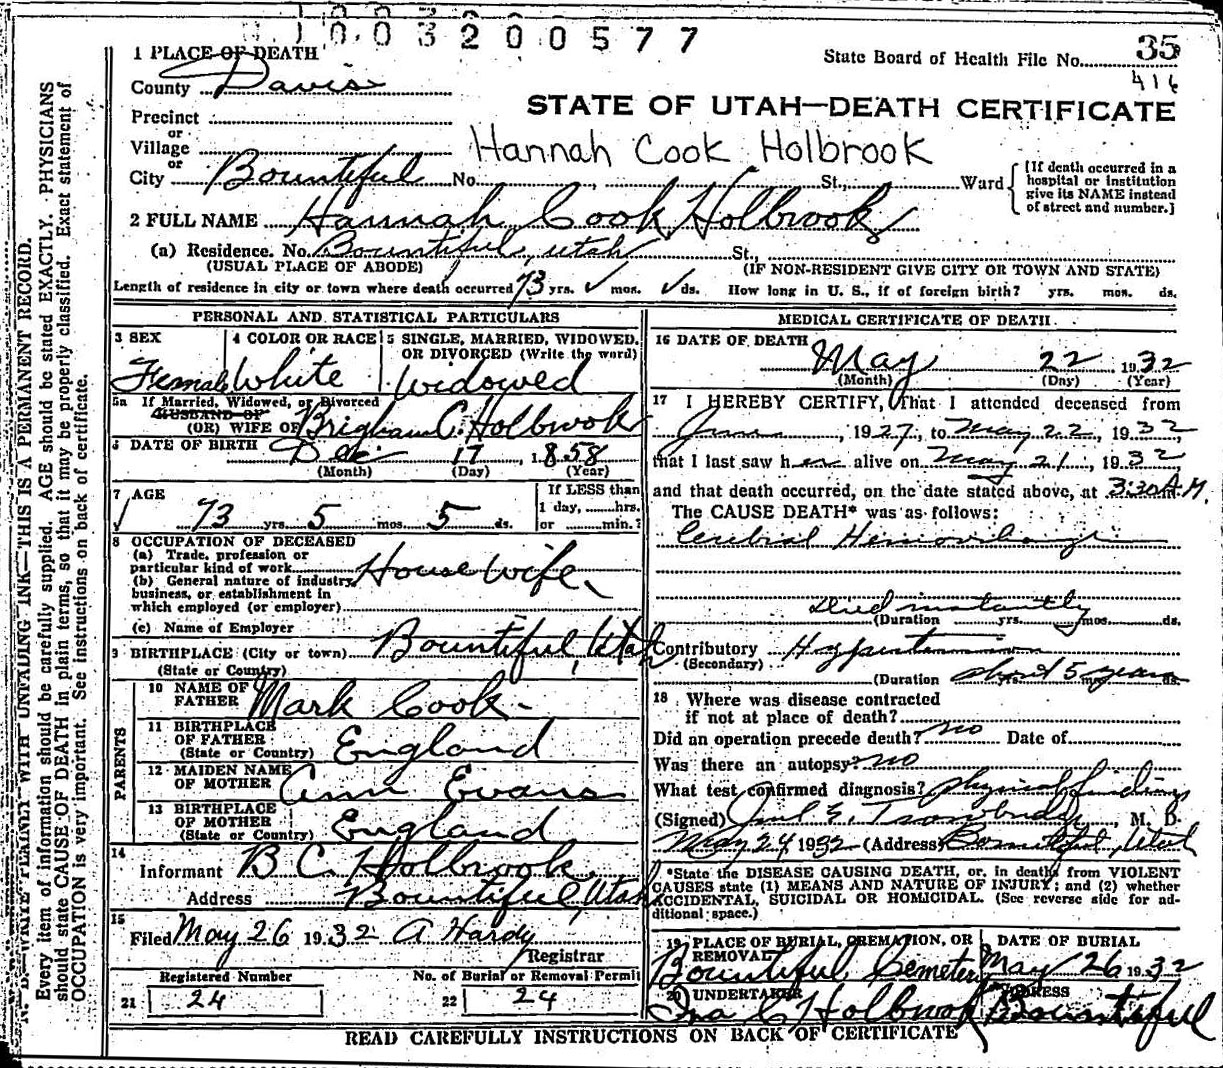 1003200577
1 PLACE OF DEATH
State Board of Health File No. 35
County Davis
416
STATE OF UTAH—DEATH CERTIFICATE
Precinct
or
Village
Hannah Cook Holbrook
or
City Bountiful No. St., Ward
[If death occurred in a hospital or institution give its NAME instead of street and number.]
2 FULL NAME Hannah Cook Holbrook
(a) Residence. No. Bountiful, utah St.,
(USUAL PLACE OF ABODE) (IF NON-RESIDENT GIVE CITY OR TOWN AND STATE)
Length of residence in city or town where death occurred 73 yrs. ✓ mos. ✓ ds. How long in U. S., if of foreign birth? yrs. mos. ds.
PERSONAL AND STATISTICAL PARTICULARS
3 SEX 4 COLOR OR RACE 5 SINGLE, MARRIED, WIDOWED,
OR DIVORCED (Write the word)
Female White Widowed
5a If Married, Widowed, or Divorced
HUSBAND OF
(OR) WIFE OF Brigham C. Holbrook
6 DATE OF BIRTH Dec. 17, 1858
(Month) (Day) (Year)
7 AGE
If LESS than
1 day, hrs.
73 yrs. 5 mos. 5 ds. or min.?
8 OCCUPATION OF DECEASED
(a) Trade, profession or
particular kind of work House Wife
(b) General nature of industry,
business, or establishment in
which employed (or employer)
(c) Name of Employer
9 BIRTHPLACE (City or town) Bountiful, Utah
(State or Country)
PARENTS
10 NAME OF
FATHER Mark Cook
11 BIRTHPLACE
OF FATHER England
(State or Country)
12 MAIDEN NAME
OF MOTHER Ann Evans
13 BIRTHPLACE
OF MOTHER England
(State or Country)
14
Informant B C. Holbrook
Address Bountiful, Utah
15
Filed May 26 1932 A Hardy
Registrar
Registered Number No. of Burial or Removal Permit
21 24 22 24
MEDICAL CERTIFICATE OF DEATH
16 DATE OF DEATH
May 22 1932
(Month) (Day) (Year)
17 I HEREBY CERTIFY, That I attended deceased from
June, 1927, to May 22, 1932,
that I last saw her alive on May 21, 1932,
and that death occurred, on the date stated above, at 3:30 A.M.
The CAUSE DEATH* was as follows:
Cerebral Hemorrhage
Died instantly
(Duration yrs. mos. ds.
Contributory Hypertension
(Secondary)
(Duration about 5 years
18 Where was disease contracted
if not at place of death?
Did an operation precede death? no Date of
Was there an autopsy? no
What test confirmed diagnosis? physical findings
(Signed) E. Trowbridge, M. D.
May 24 1932 (Address) Bountiful, Utah
*State the DISEASE CAUSING DEATH, or, in deaths from VIOLENT
CAUSES state (1) MEANS AND NATURE OF INJURY; and (2) whether
ACCIDENTAL, SUICIDAL OR HOMICIDAL. (See reverse side for ad-
ditional space.)
19 PLACE OF BURIAL, CREMATION, OR DATE OF BURIAL
REMOVAL
Bountiful Cemetery May 26 1932
20 UNDERTAKER ADDRESS
Ira C Holbrook Bountiful
READ CAREFULLY INSTRUCTIONS ON BACK OF CERTIFICATE
N. B.—WRITE PLAINLY WITH UNFADING INK—THIS IS A PERMANENT RECORD.
Every item of information should be carefully supplied. AGE should be stated EXACTLY. PHYSICIANS
should state CAUSE OF DEATH in plain terms, so that it may be properly classified. Exact statement of
OCCUPATION is very important. See instructions on back of certificate.